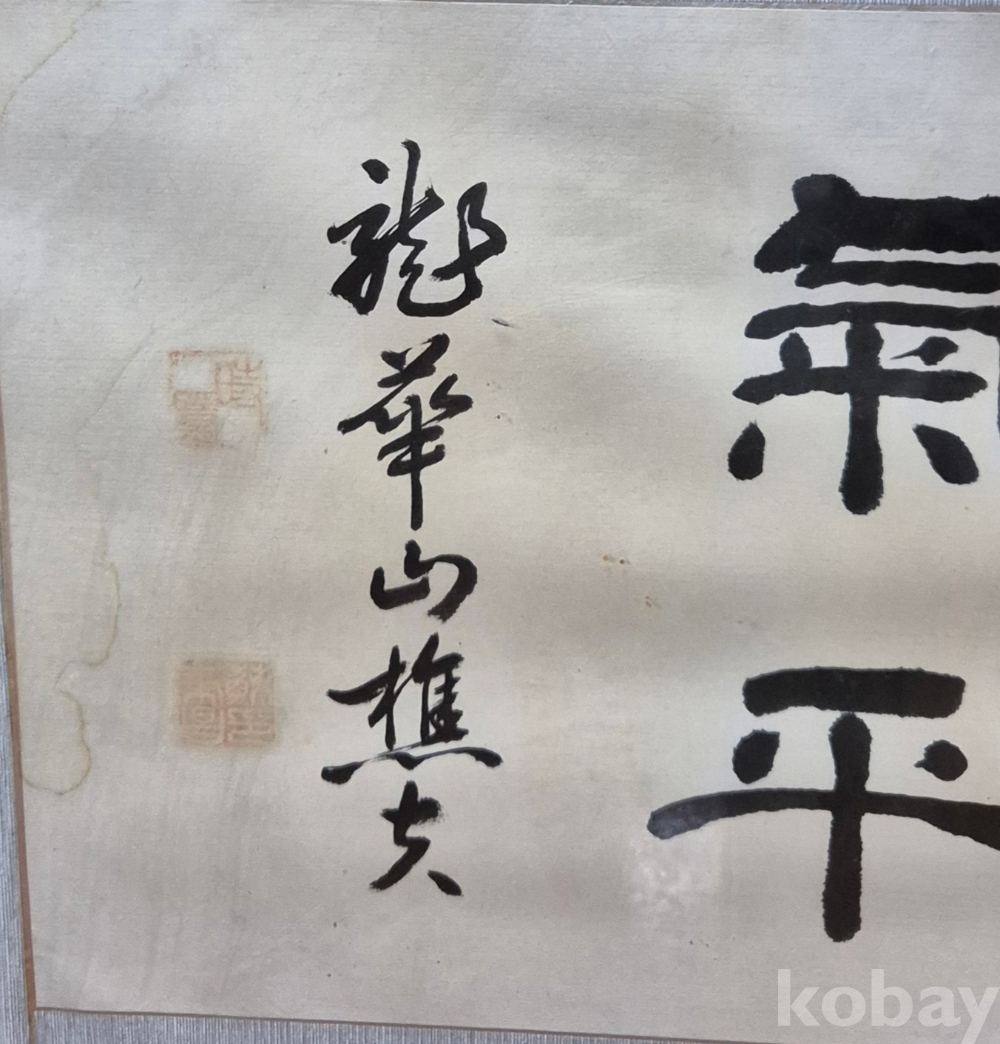 氣平
龍華山樵夫
kobay